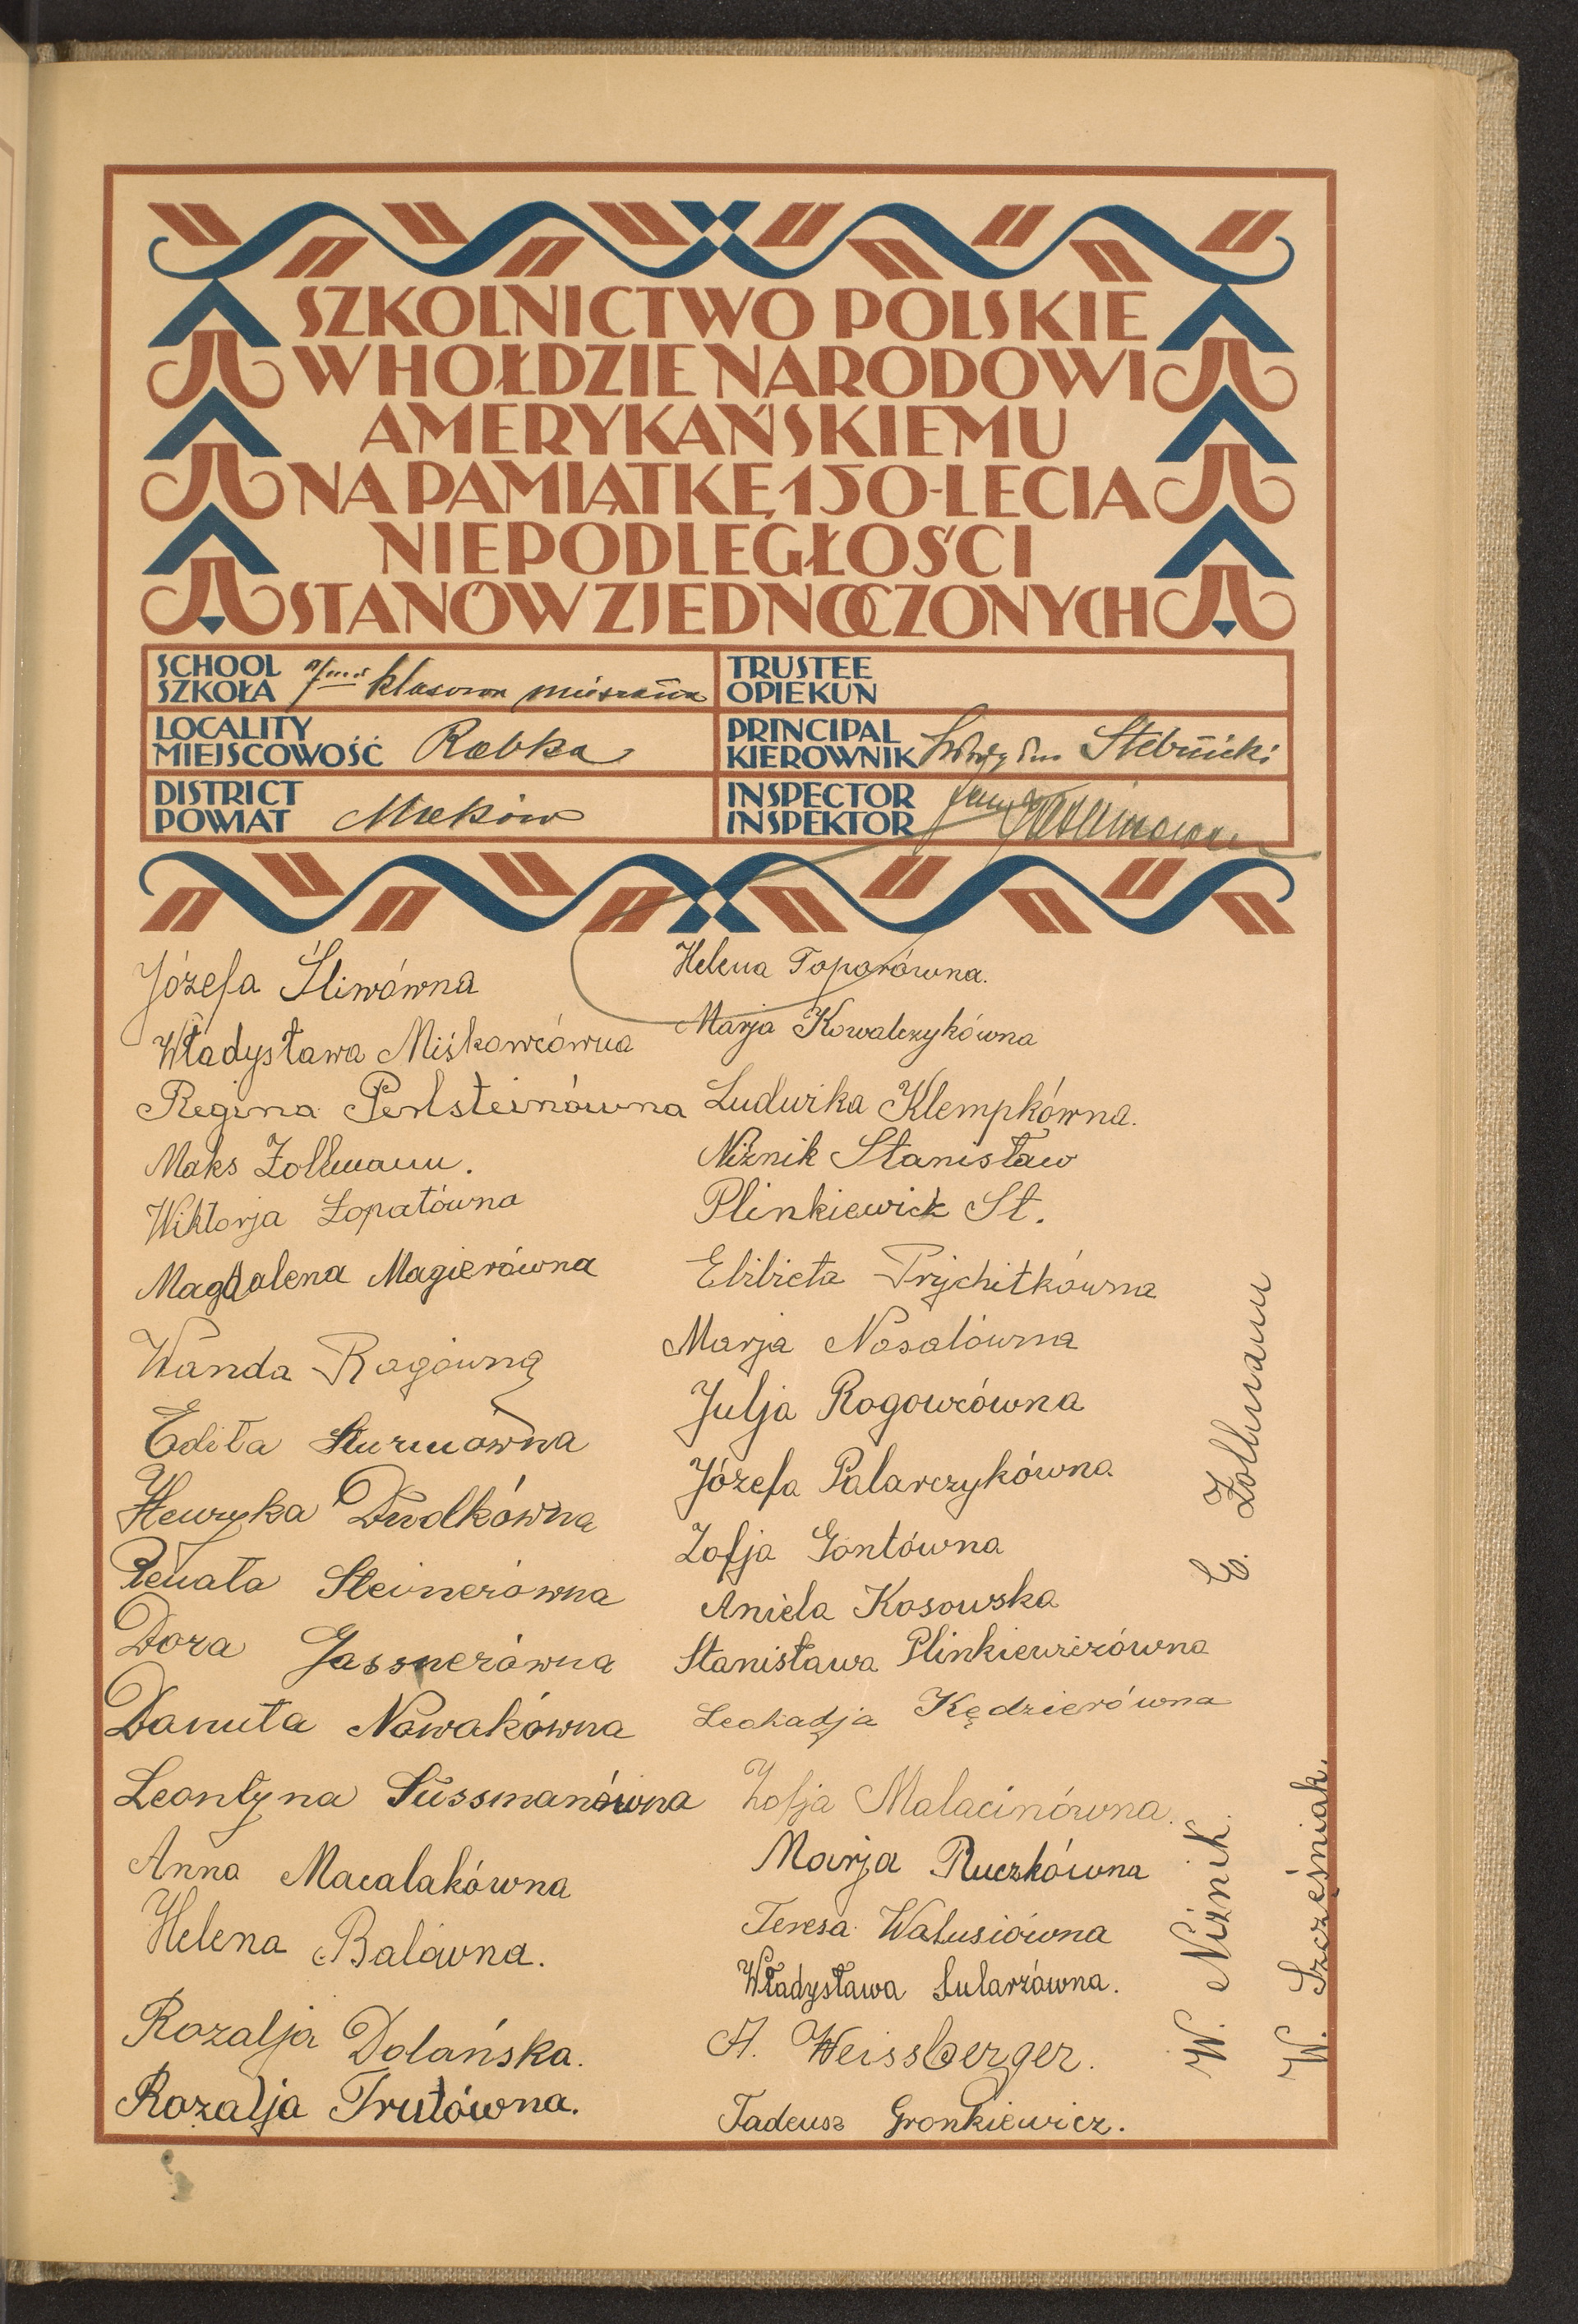 SZKOLNICTWO POLSKIE
W HOŁDZIE NARODOWI
AMERYKAŃSKIEMU
NA PAMIĄTKĘ 150-LECIA
NIEPODLEGŁOŚCI
STANÓW ZJEDNOCZONYCH
SCHOOL
SZKOŁA 7mio klasowa mieszana
LOCALITY
MIEJSCOWOŚĆ Rabka
DISTRICT
POWIAT Maków
TRUSTEE
OPIEKUN
PRINCIPAL
KIEROWNIK Stebnicki
INSPECTOR
INSPEKTOR
Józefa Śliwówna
Władysława Miśkowcówna
Regina Perlsteinówna
Maks Zollmann.
Wiktorja Łopatówna
Magdalena Magierówna
Wanda Rogówna
Edita Sturmówna
Henryka Dwolkówna
Renata Steinerówna
Dora Gassnerówna
Danuta Nowakówna
Leontyna Süssmanówna
Anna Macalakówna
Helena Balówna.
Rozalja Dolańska.
Rozalja Trutówna.
Helena Toporówna.
Marja Kowalczykówna
Ludwika Klempkówna.
Niżnik Stanisław
Plinkiewicz St.
Elżbieta Prychitkówna
Marja Nosalówna
Julja Rogowcówna
Józefa Palarczykówna
Zofja Gontówna
Aniela Kosowska
Stanisława Plinkiewiczówna
Leokadja Kędzierówna
Zofja Malacinówna.
Marja Ruczkówna
Teresa Watusiówna
Władysława Sularzówna.
A. Weissberger.
Tadeusz Gronkiewicz.
E. Zollmann
W. Niżnik.
W. Szcześniak.